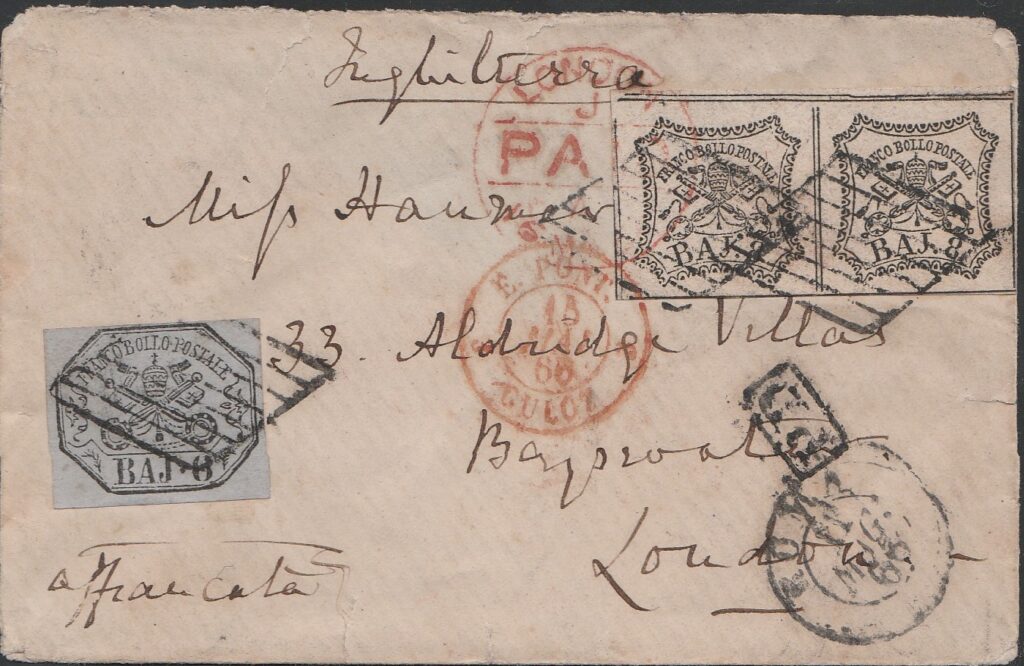 Inghilterra
LONDON
PA
FRANCO BOLLO POSTALE
BAJ. 8
FRANCO BOLLO POSTALE
BAJ. 8
Miss
E. PONT.
CULOZ
33 Aldridge Villas
FRANCO BOLLO POSTALE
BAJ. 6
Bayswater
P.D.
London
ROMA
affrancata